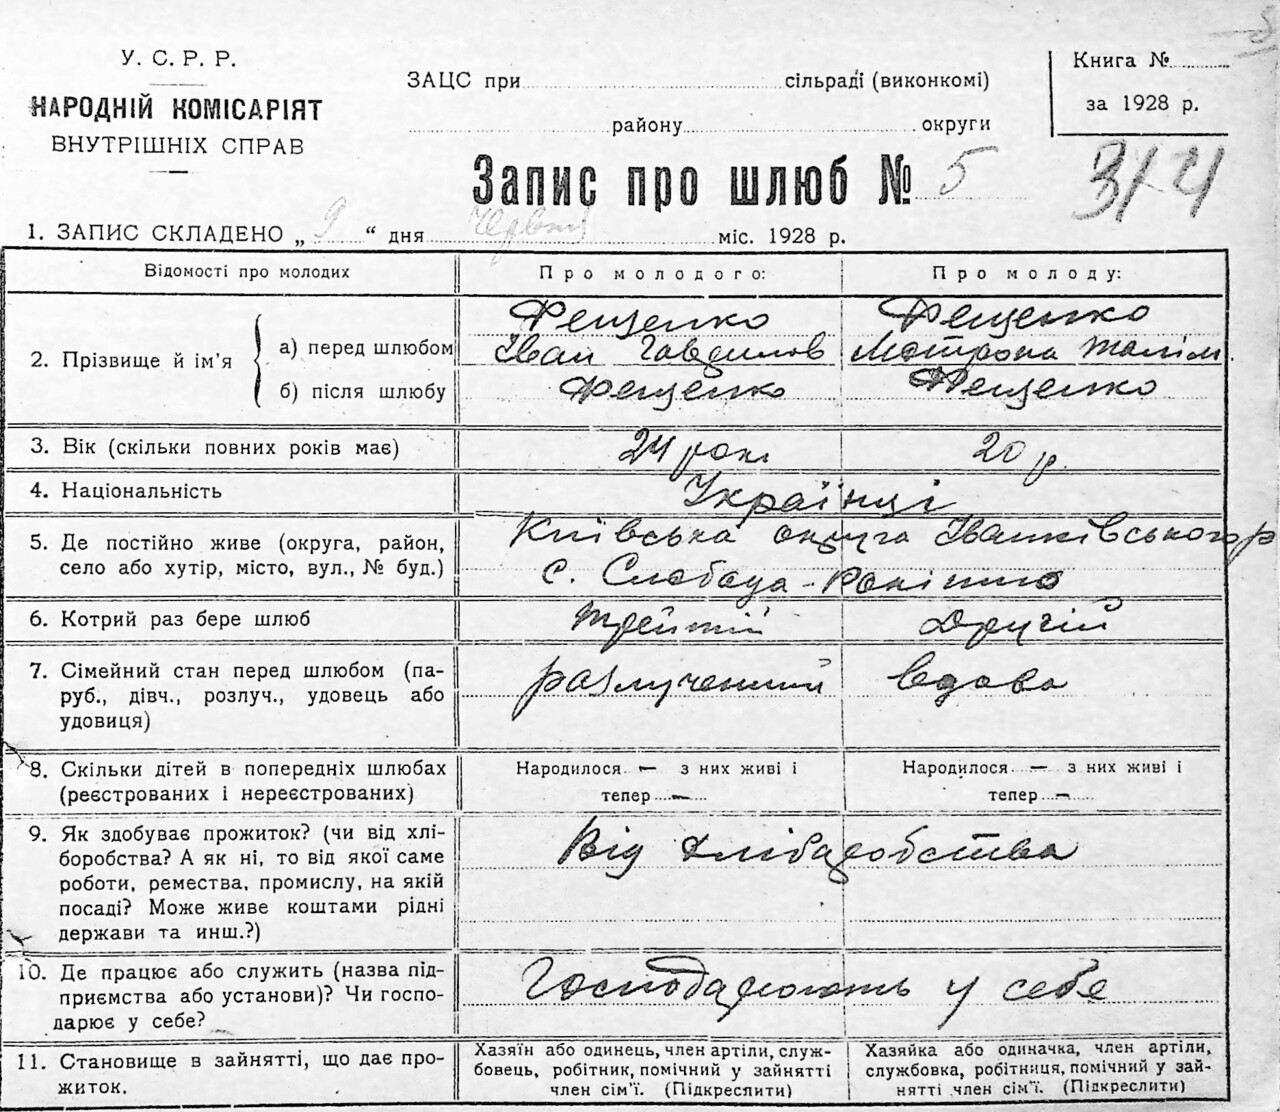 У. С. Р. Р.
НАРОДНІЙ КОМІСАРІЯТ
ВНУТРІШНІХ СПРАВ
ЗАЦС при сільраді (виконкомі)
району округи
Книга №
за 1928 р.
Запис про шлюб № 5
1. ЗАПИС СКЛАДЕНО „ 9 “ дня червня міс. 1928 р.
Відомості про молодих
Про молодого:
Про молоду:
2. Прізвище й ім’я
а) перед шлюбом
Фещенко
Іван Гаврилов
Фещенко
Мотрона
б) після шлюбу
Фещенко
Фещенко
3. Вік (скільки повних років має)
24 роки
20 р.
4. Національність
Українці
5. Де постійно живе (округа, район,
село або хутір, місто, вул., № буд.)
Київська округа Іванківського р
с. Слобода-
6. Котрий раз бере шлюб
третій
Другій
7. Сімейний стан перед шлюбом (па-
руб., дівч., розлуч., удовець або
удовиця)
разлучений
вдова
8. Скільки дітей в попередніх шлюбах
(реєстрованих і нереєстрованих)
Народилося — з них живі і
тепер —
Народилося — з них живі і
тепер —
9. Як здобуває прожиток? (чи від хлі-
боробства? А як ні, то від якої саме
роботи, ремества, промислу, на якій
посаді? Може живе коштами рідні
держави та инш.?)
Від хлібаробства
10. Де працює або служить (назва під-
приємства або установи)? Чи госпо-
дарює у себе?
Господарюють у себе
11. Становище в зайнятті, що дає про-
житок.
Хазяїн або одинець, член артіли, служ-
бовець, робітник, помічний у зайнятті
член сім’ї. (Підкреслити)
Хазяйка або одиначка, член артіли,
службовка, робітниця, помічний у зай-
нятті член сім’ї. (Підкреслити)